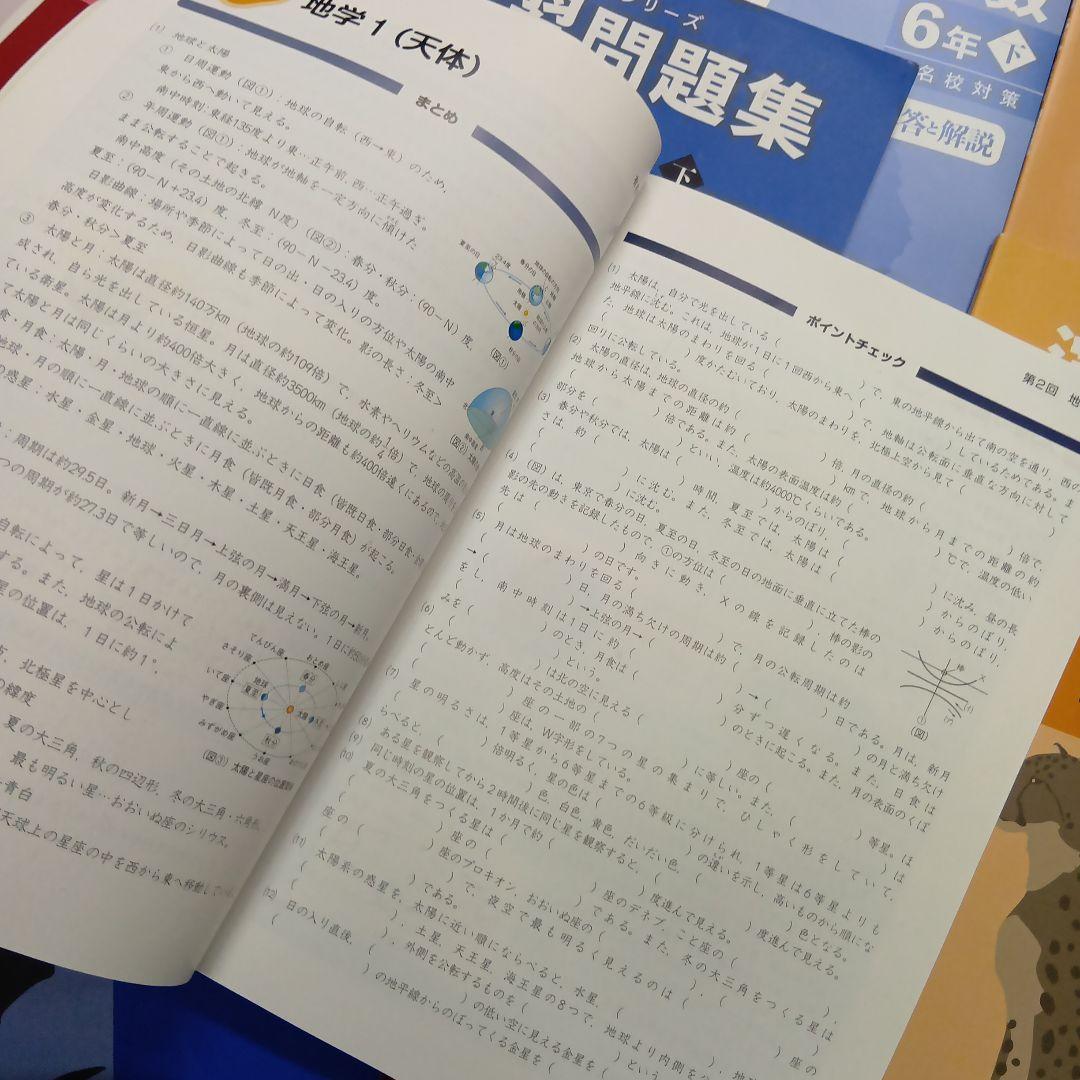 地学1（天体）
まとめ
(1) 地球と太陽
① 日周運動（図①）：地球の自転（西→東）のため、
東から西へ動いて見える。
南中時刻：東経135度より東…正午前、西…正午過ぎ。
② 年周運動（図①）：地球が地軸を一定方向に傾けた
まま公転することで起きる。
南中高度（その土地の北緯 N度）（図②）：春分・秋分：(90－N) 度、
夏至：(90－N＋23.4) 度、冬至：(90－N－23.4) 度。
日影曲線：場所や季節によって日の出・日の入りの方位や太陽の南中
高度が変化するため、日影曲線も季節によって変化。影の長さ：冬至＞
春分・秋分＞夏至
③ 太陽と月：太陽は直径約140万km（地球の約109倍）で、水素やヘリウムなどの高温の
成され、自ら光を出している恒星。月は直径約3500km（地球の約1/4倍）で、地球の
ている衛星。太陽は月より約400倍大きく、地球からの距離も約400倍遠くにあるので、
て太陽と月は同じくらいの大きさに見える。
食・月食：太陽・月・地球の順に一直線に並ぶときに日食（皆既日食・部分日食・
地球・月の順に一直線に並ぶときに月食（皆既月食・部分月食）が起こる。
の惑星：水星・金星・地球・火星・木星・土星・天王星・海王星。
：周期は約29.5日。新月→三日月→上弦の月→満月→下弦の月→新月。
つの周期が約27.3日で等しいので、月の裏側は見えない。1日に約
自転によって、星は1日かけて
する。また、地球の公転によ
星の位置は、1日に約1°。
北極星を中心とし
の緯度
夏の大三角、秋の四辺形、冬の大三角・六角形。
最も明るい星…おおいぬ座のシリウス。
青白
天球上の星座の中を西から東へ移動して
23.4度
太陽
(図①)
(図②)
てんびん座
おとめ座
さそり座
いて座
やぎ座
みずがめ座
うお座
地球
夏至
春分
太陽
秋分
(図③) 太陽と星座の位置関係
ポイントチェック
第2回 地
(1) 太陽は、自分で光を出している（ ）で、東の地平線から出て南の空を通り、西の
地平線に沈む。これは、地球が1日に1回西から東へ（ ）しているためである。ま
た、地球は太陽のまわりを回る（ ）で、地軸は公転面に垂直な方向に対して
（ ）度かたむいており、太陽のまわりを、北極上空から見て（ ）
回りに公転している。
(2) 太陽の直径は、地球の直径の約（ ）倍、月の直径の約（ ）倍で、
地球から太陽までの距離は約（ ）kmで、地球から月までの距離の約
（ ）倍である。また、太陽の表面温度は約（ ）℃で、温度の低い
部分を（ ）といい、温度は約4000℃くらいである。
(3) 春分や秋分では、太陽は（ ）からのぼり、（ ）に沈み、昼の長
さは、約（ ）時間、夏至では、太陽は（ ）からのぼり、
（ ）に沈む。また、冬至では、太陽は（ ）からのぼり、
（ ）に沈む。
(4) （図）は、東京で春分の日、夏至の日、冬至の日の地面に垂直に立てた棒の
影の先の動きを記録したもので、①の方位は（ ）、棒の影の
先は（ ）向きに動き、Xの線を記録したのは
（ ）の日です。
(5) 月は地球のまわりを回る（ ）で、月の公転周期は約（ ）日である。月は、新月
→（ ）→上弦の月→（ ）→（ ）の月と満ち欠け
をし、南中時刻は1日に約（ ）分ずつ遅くなる。また、日食は
（ ）のとき、月食は（ ）のときに起こる。また、月の表面のくぼ
みを（ ）という。
(6) （ ）は北の空に見える（ ）座の（ ）等星。ほ
とんど動かず、高度はその土地の（ ）に等しい。また、（ ）は
（ ）座の一部の7つの星の集まりで、ひしゃく形をしていて、
（ ）座は、W字形をしている。
(7) 星の明るさは、1等星から6等星までの6等級に分けられ、1等星は6等星よりも
（ ）倍明るく、星の色は（ ）の違いを示し、高いものから順にな
らべると、（ ）色、白色、黄色、だいだい色、（ ）色となる。
(8) ある星を観察してから2時間後に同じ星を観察すると、（ ）度進んで見える。
(9) 同じ時刻の星の位置は、1か月で約（ ）度進んで見える。
(10) 夏の大三角をつくる星は（ ）座のデネブ、こと座の（ ）、
（ ）座の（ ）である。また、冬の大三角をつくる星は
（ ）座のプロキオン、おおいぬ座の（ ）、（ ）座の
（ ）で、夜空で最も明るく見えるのは（ ）
である。
(11) 太陽系の惑星を、太陽に近い順にならべると、水星、（ ）、地球、
（ ）、（ ）、土星、天王星、海王星の8つで、地球より内側を
、外側を公転するものを（ ）という
(12) 日の入り直後、（ ）の低い空に見える金星を（
）の地平線からのぼってくる金星を（
棒
X
①
(図)
習問題集
下
シリーズ
6年 下
名校対策
答と解説